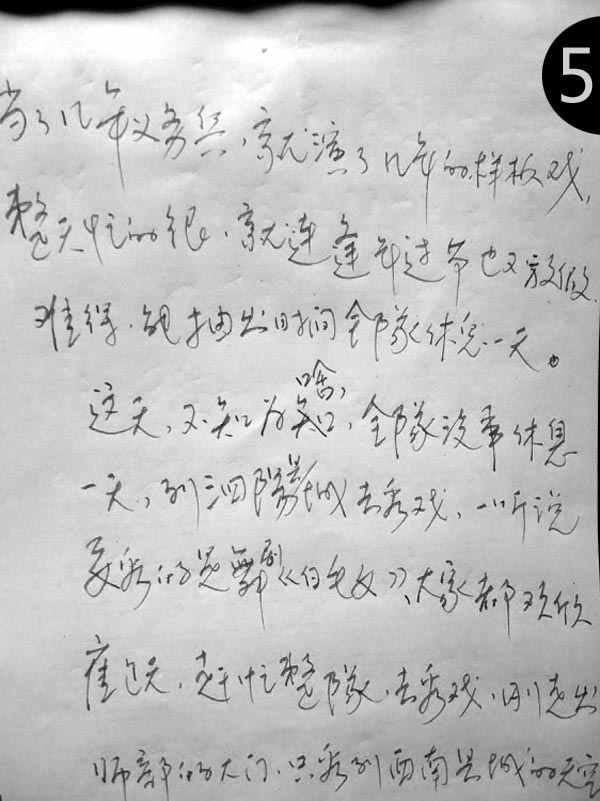 5
当了几年义务兵，就尤演了几年的样板戏，
整天忙的很，就连逢年过节也不放假
难得，能抽出时间全隊休息一天。
啥，
这天，不知为，全隊没事休息
一天，到泗陽县城去看戏，一听说
要看的是舞剧《白毛女》，大家都欢欣
雀跃，赶忙整隊，去看戏，刚走出
师部的大门，只看到西南县城的天空